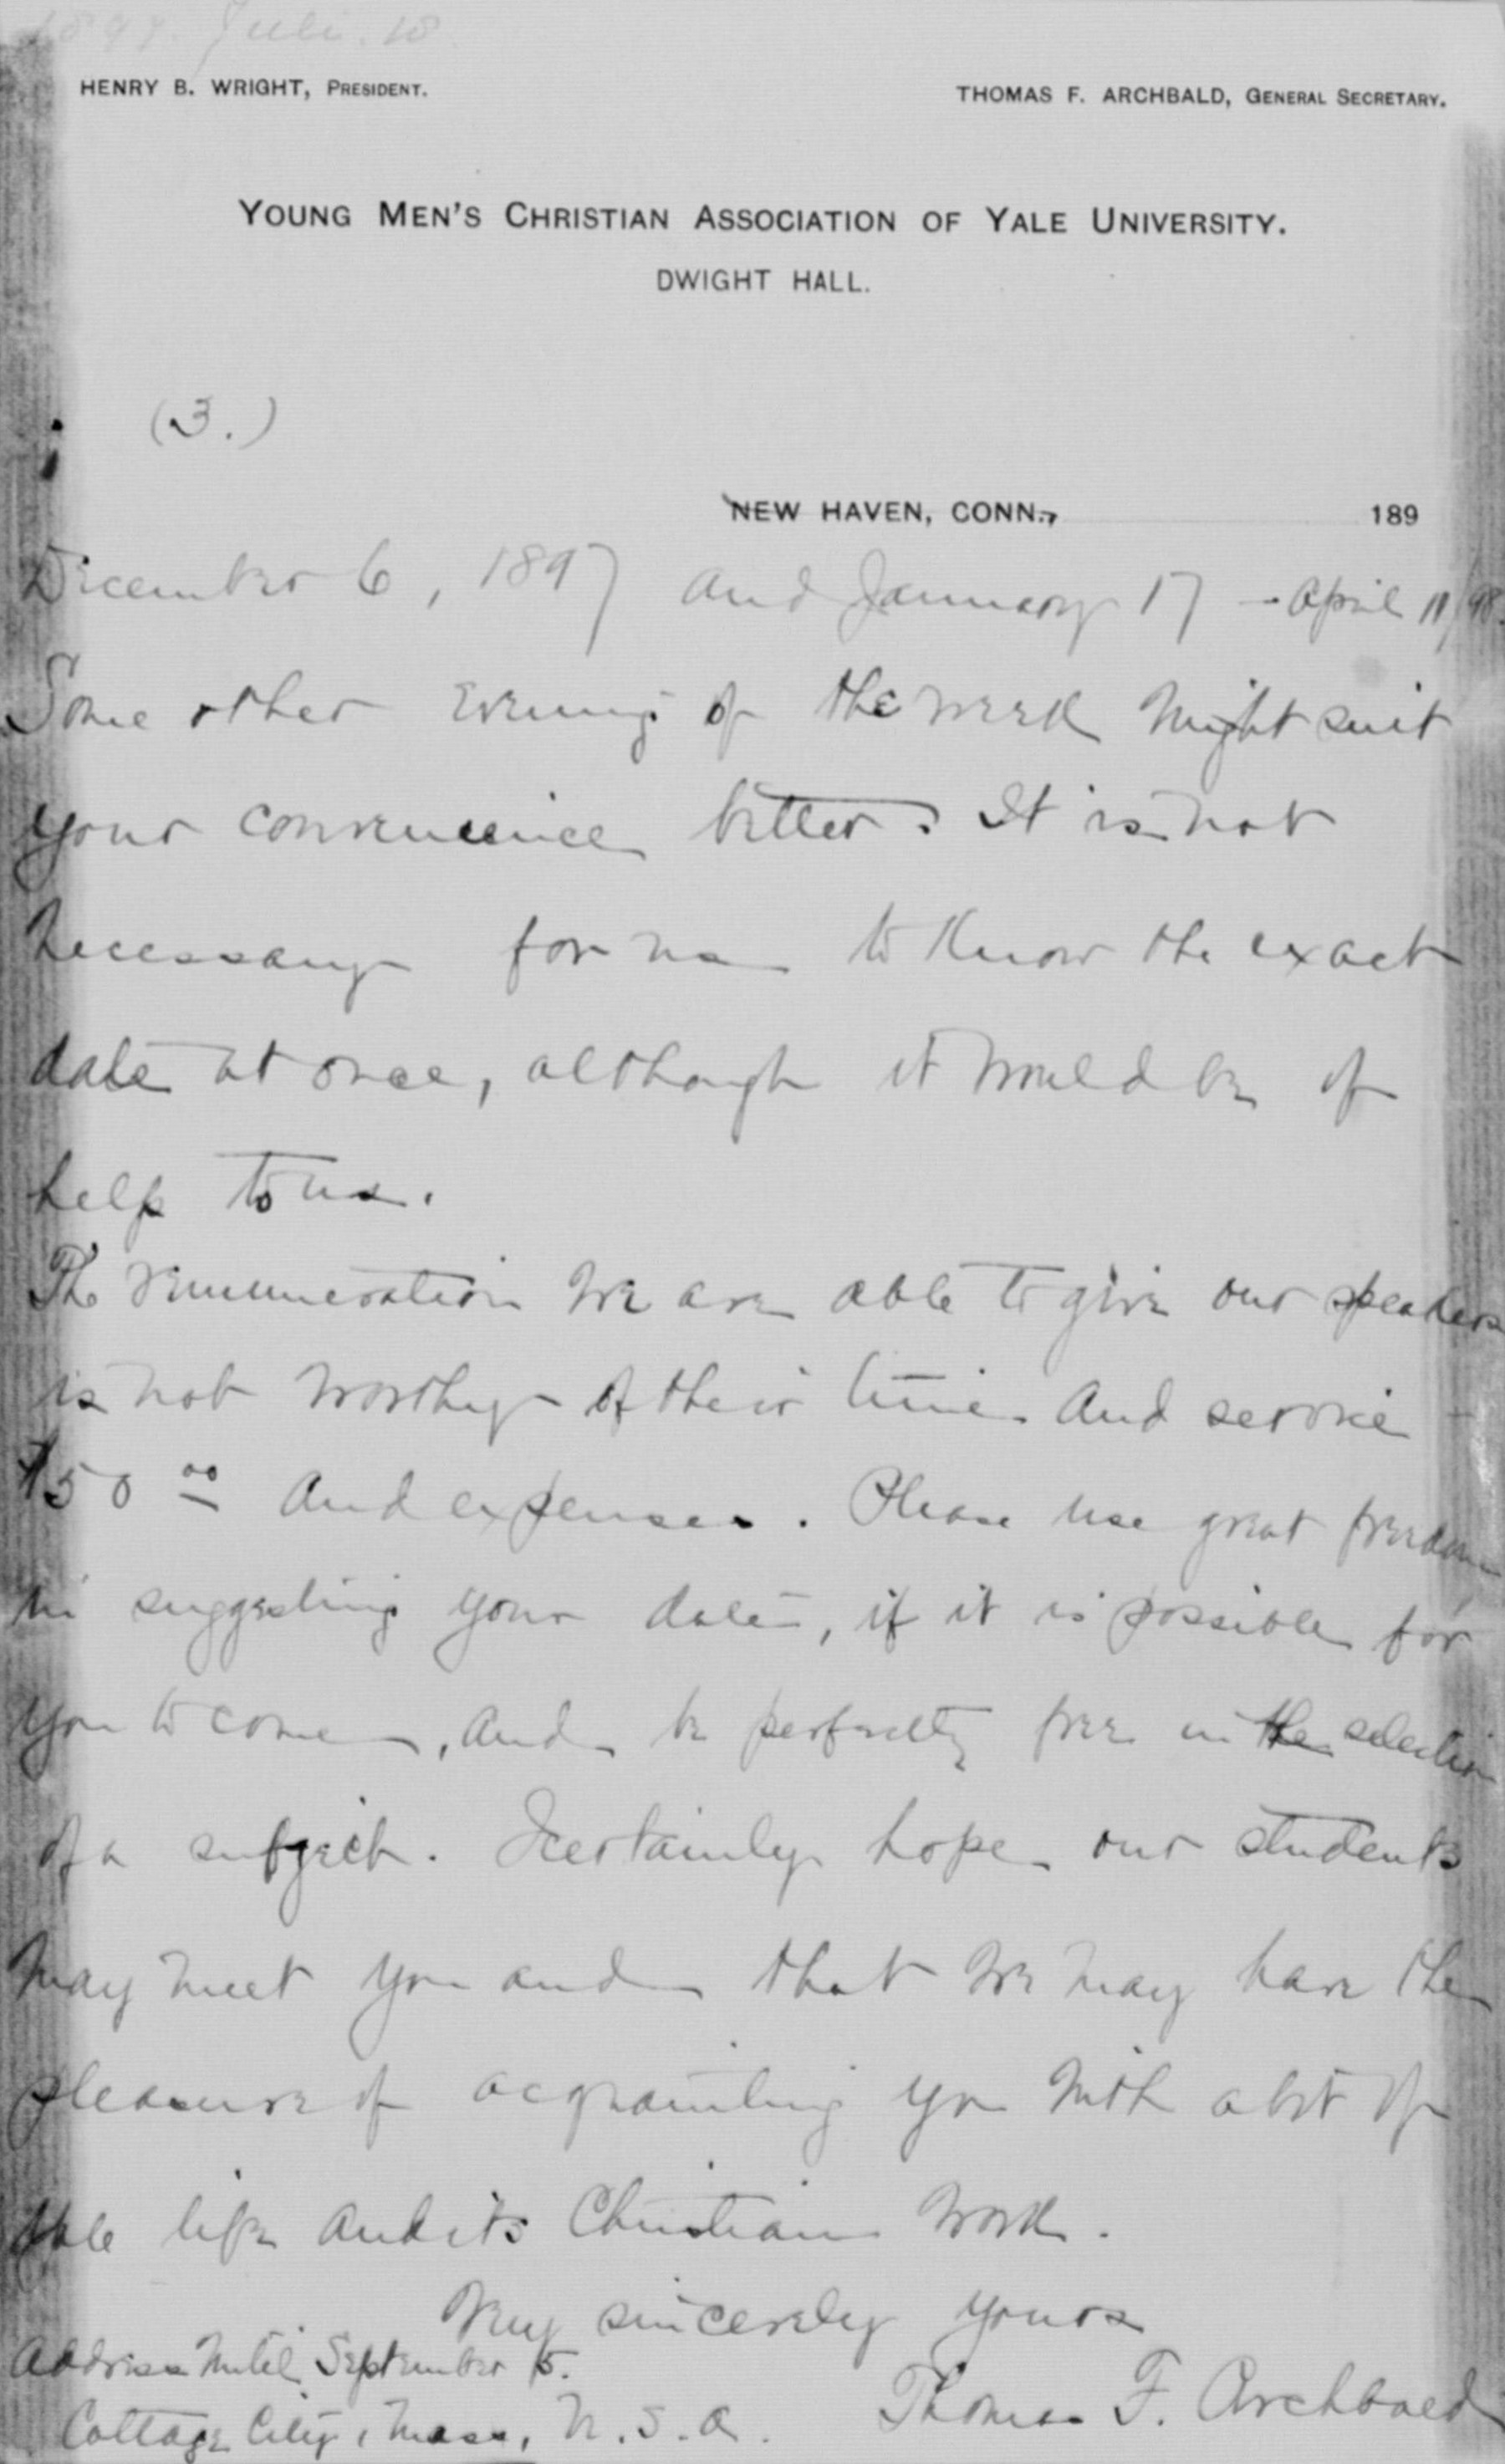 1897. Juli. 18
HENRY B. WRIGHT, PRESIDENT.
THOMAS F. ARCHBALD, GENERAL SECRETARY.
YOUNG MEN'S CHRISTIAN ASSOCIATION OF YALE UNIVERSITY.
DWIGHT HALL.
(3.)
NEW HAVEN, CONN., 189
December 6, 1897 and January 17 - April 11/98.
Some other evening of the week might suit
your convenience better. It is not
necessary for us to know the exact
date at once, although it would be of
help to us.
The remuneration we are able to give our speakers
is not worthy of their time and service -
$50 00 and expenses. Please use great freedom
in suggesting your date, if it is possible for
you to come, and be perfectly free in the selection
of a subject. I certainly hope our students
may meet you and that we may have the
pleasure of acquainting you with a bit of
Yale life and its Christian work.
Very sincerely yours
Address until September 15.
Thomas F. Archbald
Cottage City, Mass, U.S.A.